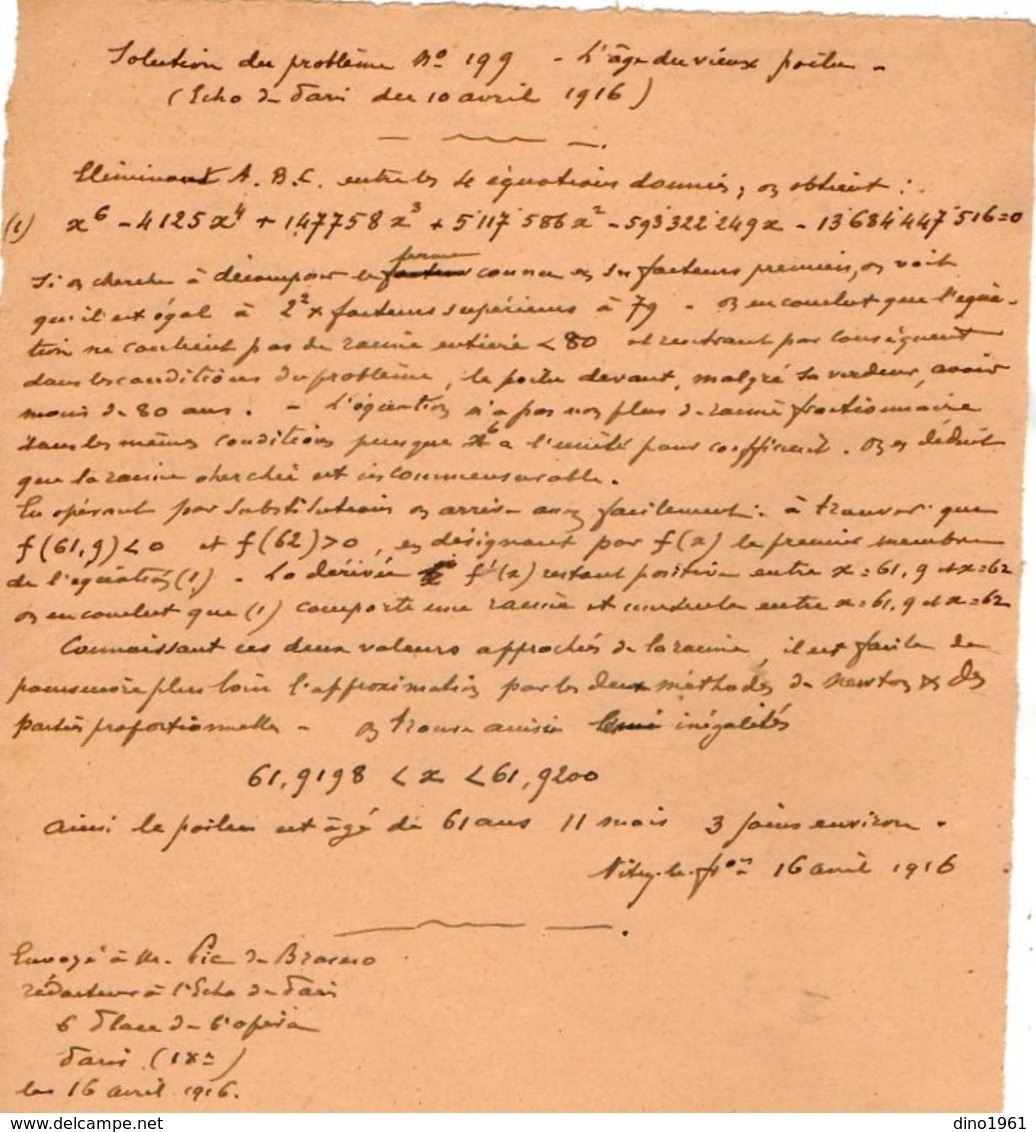 Solution du problème No 199 - L'âge du vieux poilu -
(Echo de Paris du 10 avril 1916)
Eliminant A. B. C. entre les 4 équations données, on obtient :
(1) x⁶ - 4125x⁴ + 147758x³ + 5'117'586x² - 593'322'249x - 13'684'447'516=0
Si on cherche à décomposer le terme connu en ses facteurs premiers, on voit
qu'il est égal à 2² x facteurs supérieurs à 79 - on en conclut que l'équa-
tion ne contient pas de racine entière < 80 et rentrant par conséquent
dans les conditions du problème, le poilu devant, malgré sa verdeur, avoir
moins de 80 ans. - L'équation n'a pas non plus de racine fractionnaire
dans les mêmes conditions puisque x⁶ a l'unité pour coefficient. On en déduit
que la racine cherchée est incommensurable.
En opérant par substitutions on arrive assez facilement à trouver que
f(61,9) < 0 et f(62) > 0, en désignant par f(x) le premier membre
de l'équation (1). - La dérivée f'(x) restant positive entre x = 61,9 et x = 62
on en conclut que (1) comporte une racine et une seule entre x = 61,9 et x = 62
Connaissant ces deux valeurs approchées de la racine, il est facile de
poursuivre plus loin l'approximation par les deux méthodes de Newton & des
parties proportionnelles - on trouve ainsi inégalités
61,9198 < x < 61,9200
Ainsi le poilu est âgé de 61 ans 11 mois 3 jours environ.
Vitry-le-Fois 16 avril 1916
Envoyé à M. Pic de
rédacteur à l'Echo de Paris
6 Place de l'opéra
Paris (IXe)
le 16 avril 1916.
dino1961